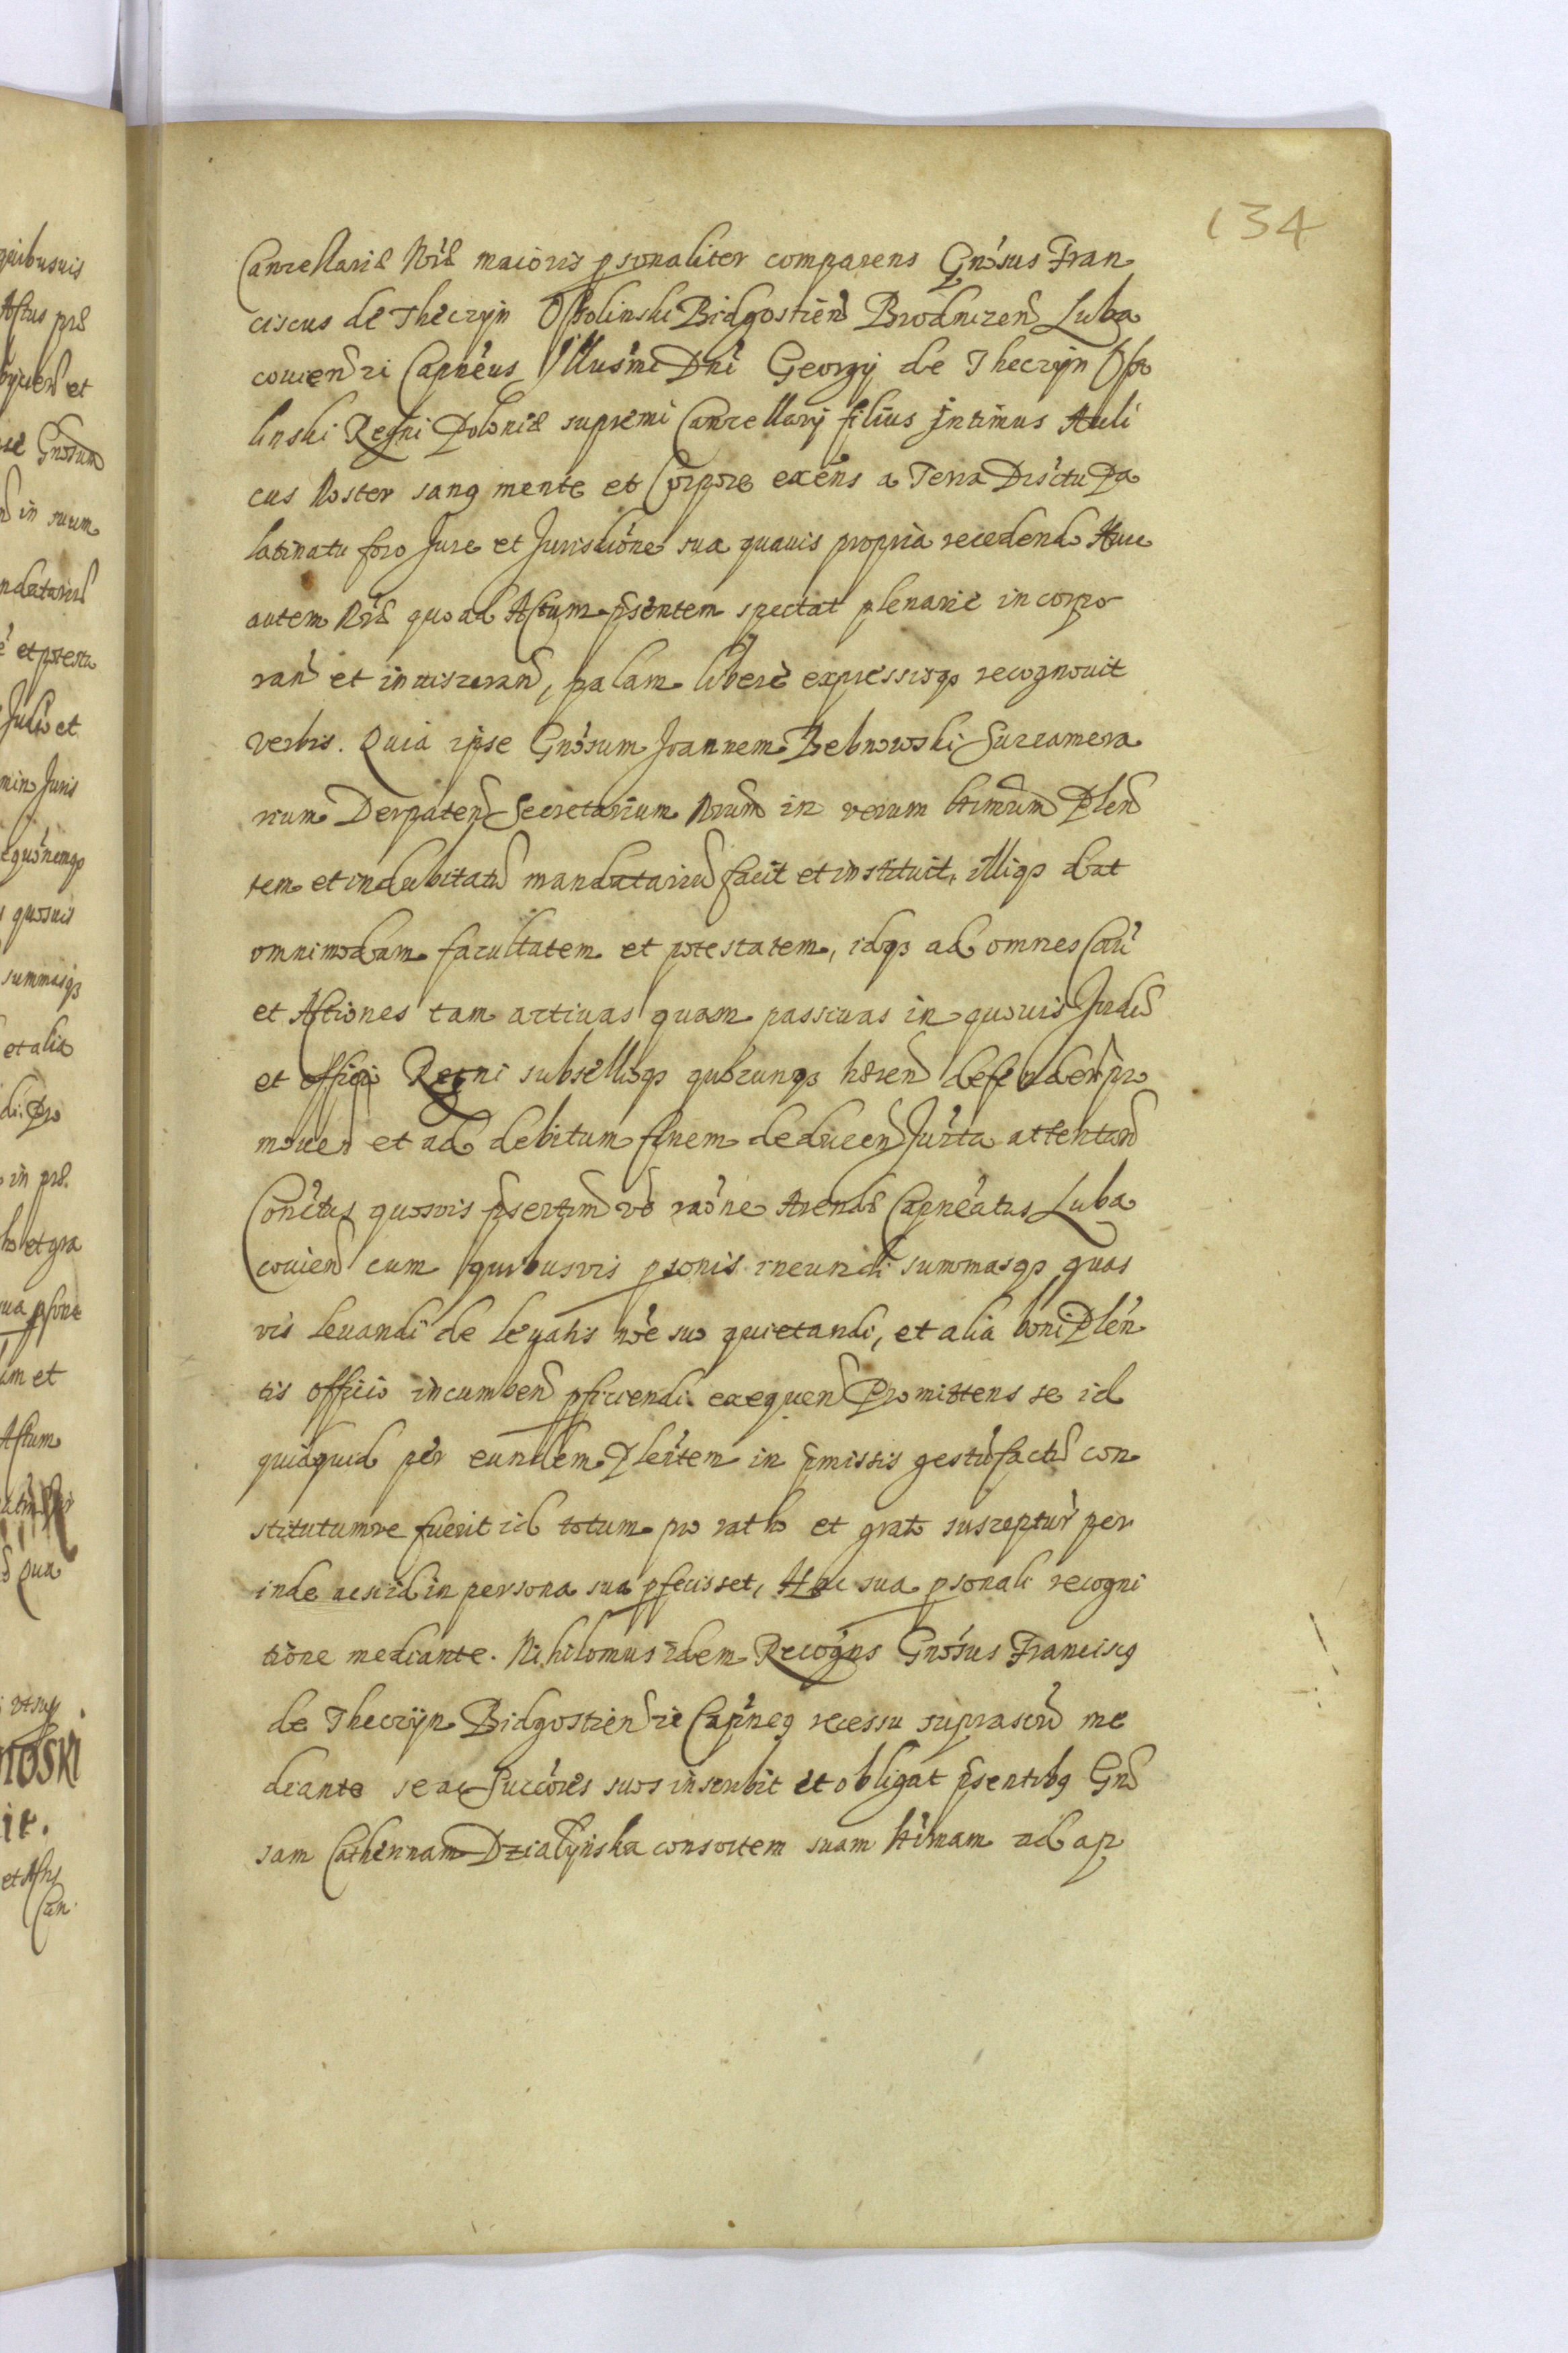 134
Cancellariæ Nr̃æ maioris psonaliter comparens Gnosus Fran
ciscus de Theczyn Ossolinski Bidgostien Brodnicen Luba
covien zi Capneus Illusmi Dni Georgij de Theczyn Osso
linski Regni Poloniæ supremi Cancellarij filius intimus Auli
cus Noster sanq mente et Corpore exens a Terra Disctu Pa
latinatu foro Jure et Jurisdione sua quavis propria recedend Huic
autem Nræ quoad Actum psentem spectat plenarie incorpo
ran et invisceran, palam libere expressisqз recognovit
verbis. Quia ipse Gnosum Joannem Bebnowski Succamera
rium Derpaten Secretarium Nrum in verum ltimum Plen
tem et indubitatu mandatariu facit et instituit, illiqз dat
omnimodam facultatem et potestatem, idqз ad omnes Cau
et Actiones tam activas quam passivas in quovis Judio
et officio Regni subsellioqз quocunqз hræn defendder pro
moven et ad debitum finem deducen Juxta attentan
Conctus quosvis psertim vo raone Arendæ Capneatus Luba
covien cum quibusvis psonis ineundi summasqз quas
vis levandi de levatis noe suo quietandi, et alia boni Plen
tis officio incumben pficiendi exequen Promittens se id
quidquid per eundem Plentem in pmissis gestu factu con
stitutumve fuerit id totum pro ratho et grato susceptur per
inde ac si id in persona sua pfecisset, Hac sua psonali recogni
tione mediante. Nihilomus idem Recogns Gnosus Francisq
de Theczyn Bidgostien zi Capneq recessu suprascrip me
diante se ac Succores suos inscribit et obligat psentibq Gno
sam Catherinam Dzialynska consortem suam ltimam ad ap